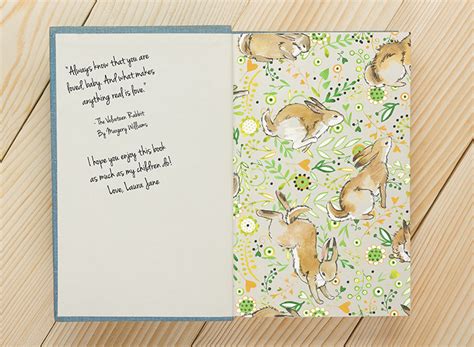 "Always know that you are
loved, baby. And what makes
anything real is love."
-The Velveteen Rabbit
By Margery Williams
I hope you enjoy this book
as much as my children do!
Love, Laura Jane